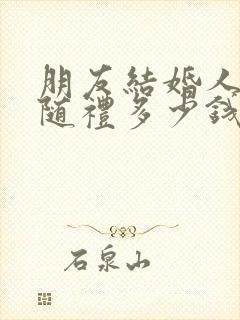 朋友結婚人
随禮多少錢
石泉山